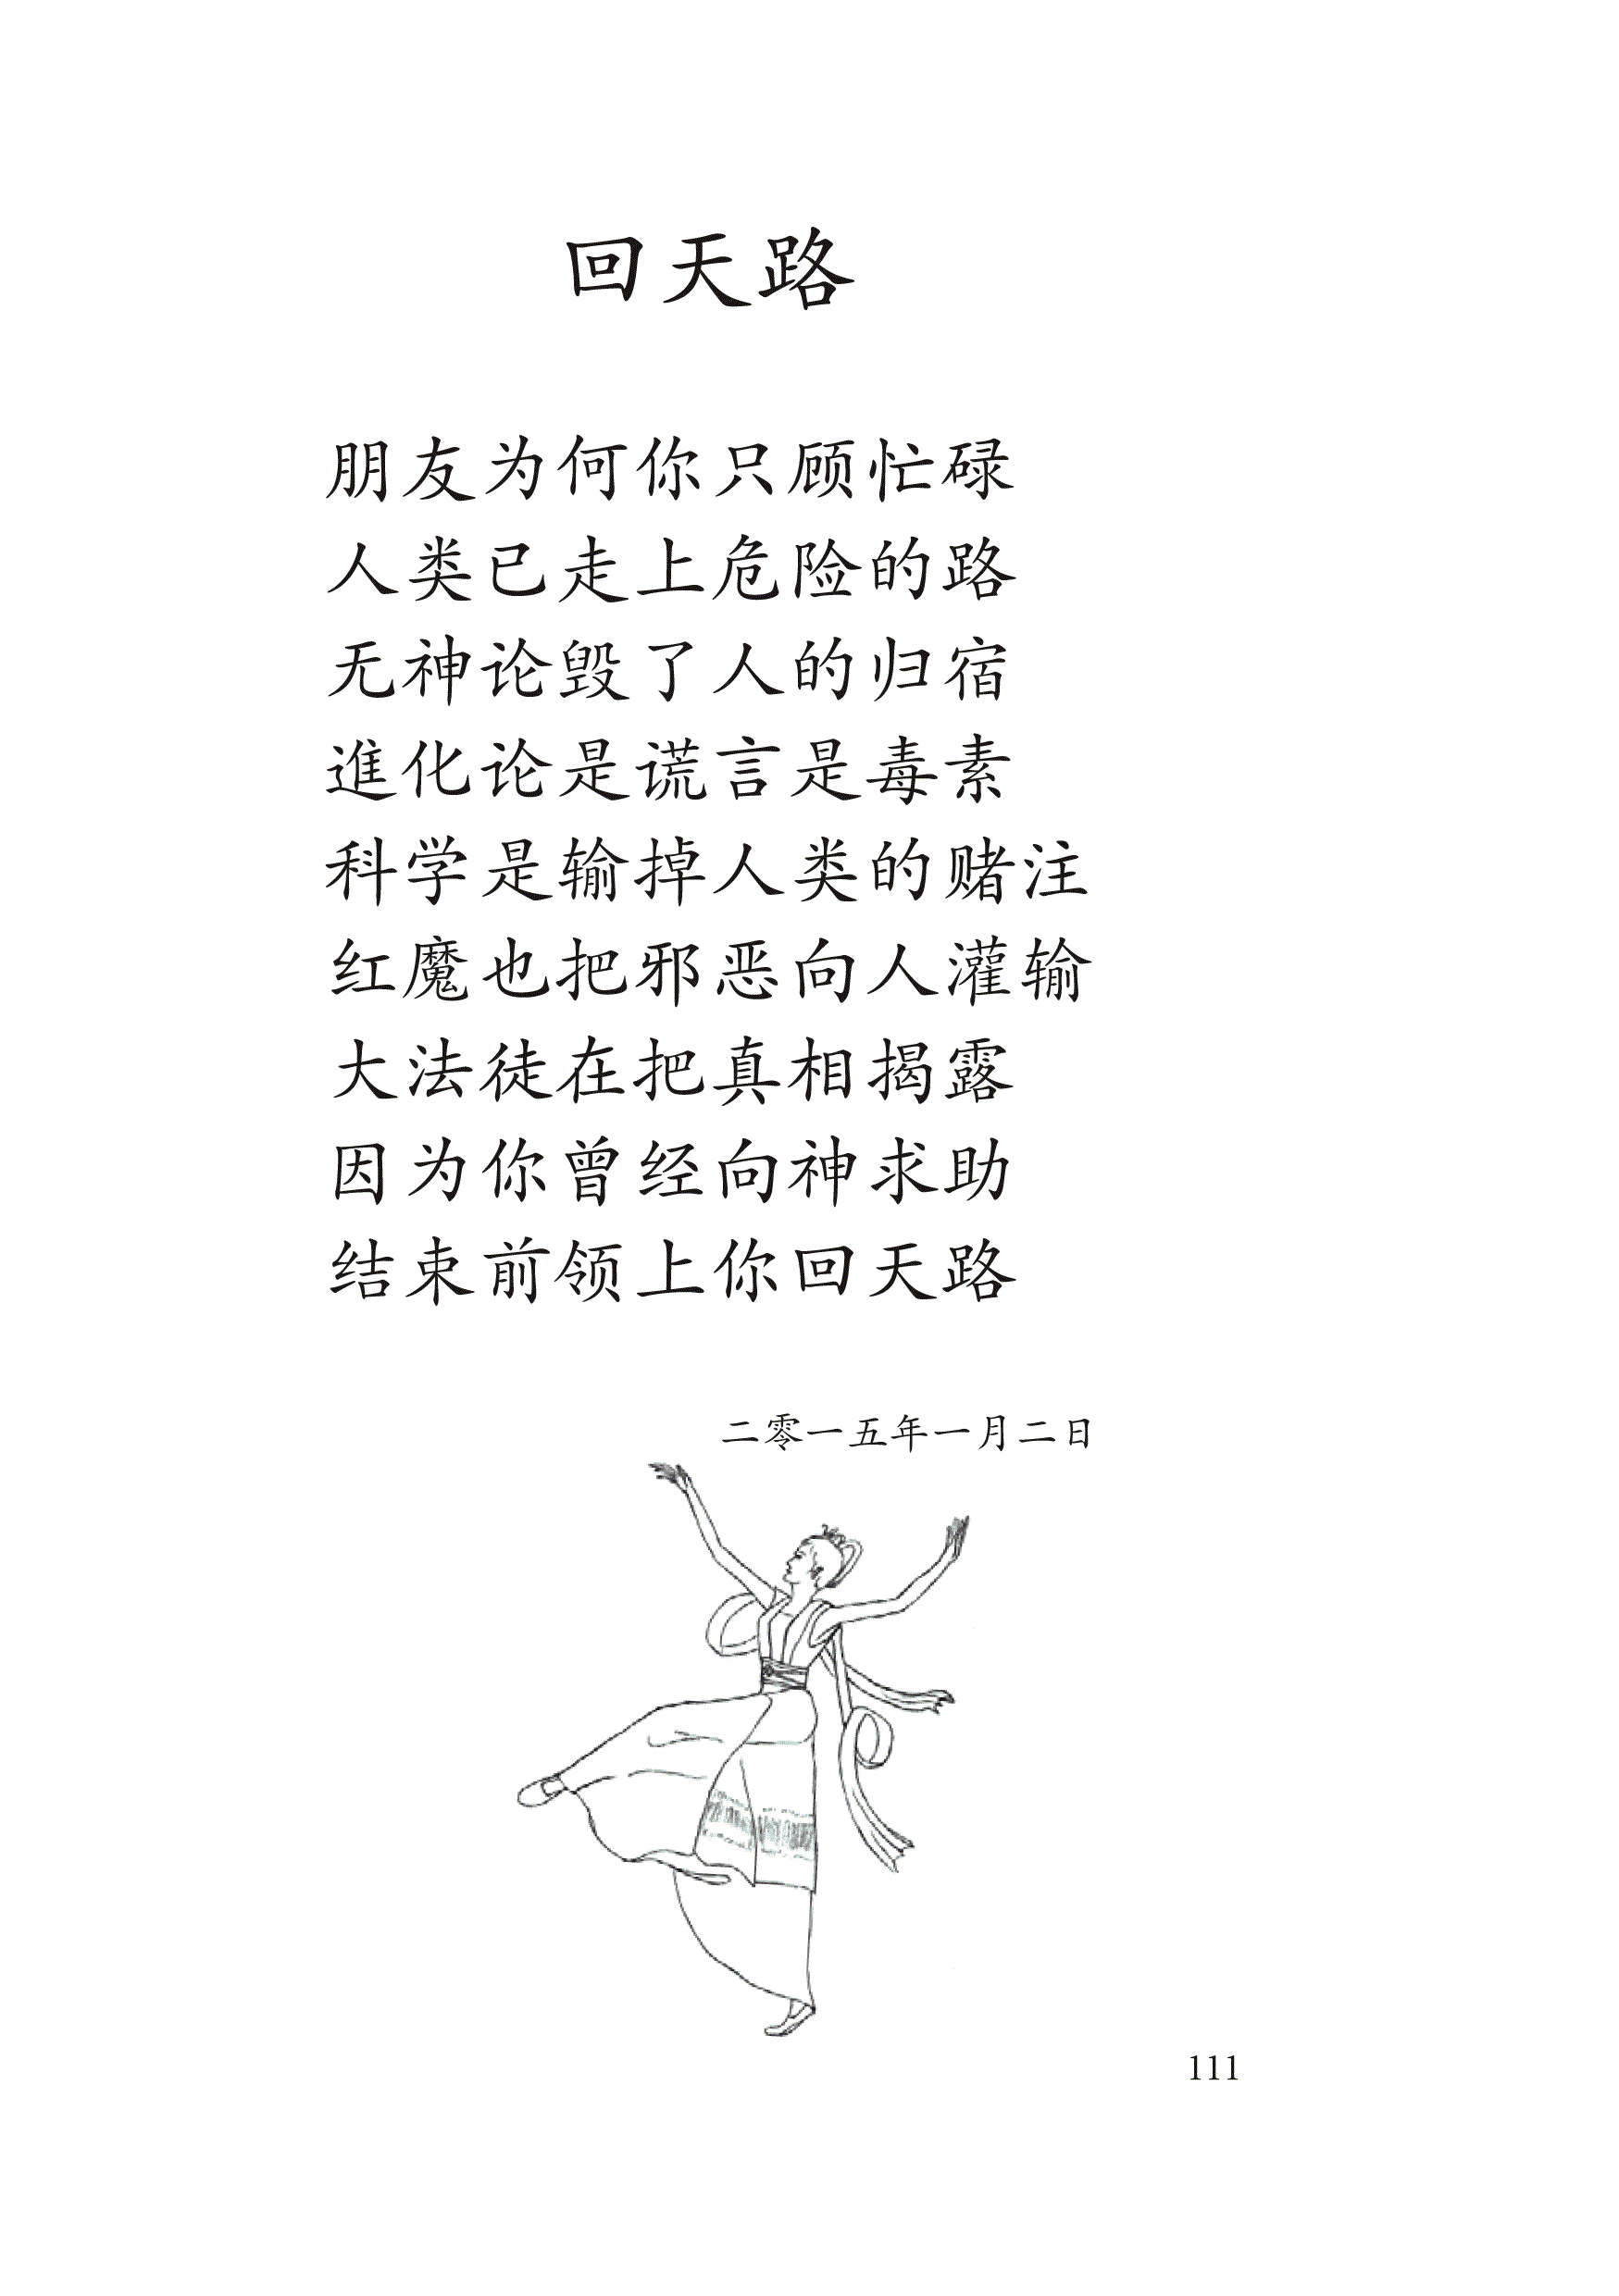 回天路
朋友为何你只顾忙碌
人类已走上危险的路
无神论毁了人的归宿
進化论是谎言是毒素
科学是输掉人类的赌注
红魔也把邪恶向人灌输
大法徒在把真相揭露
因为你曾经向神求助
结束前领上你回天路
二零一五年一月二日
111